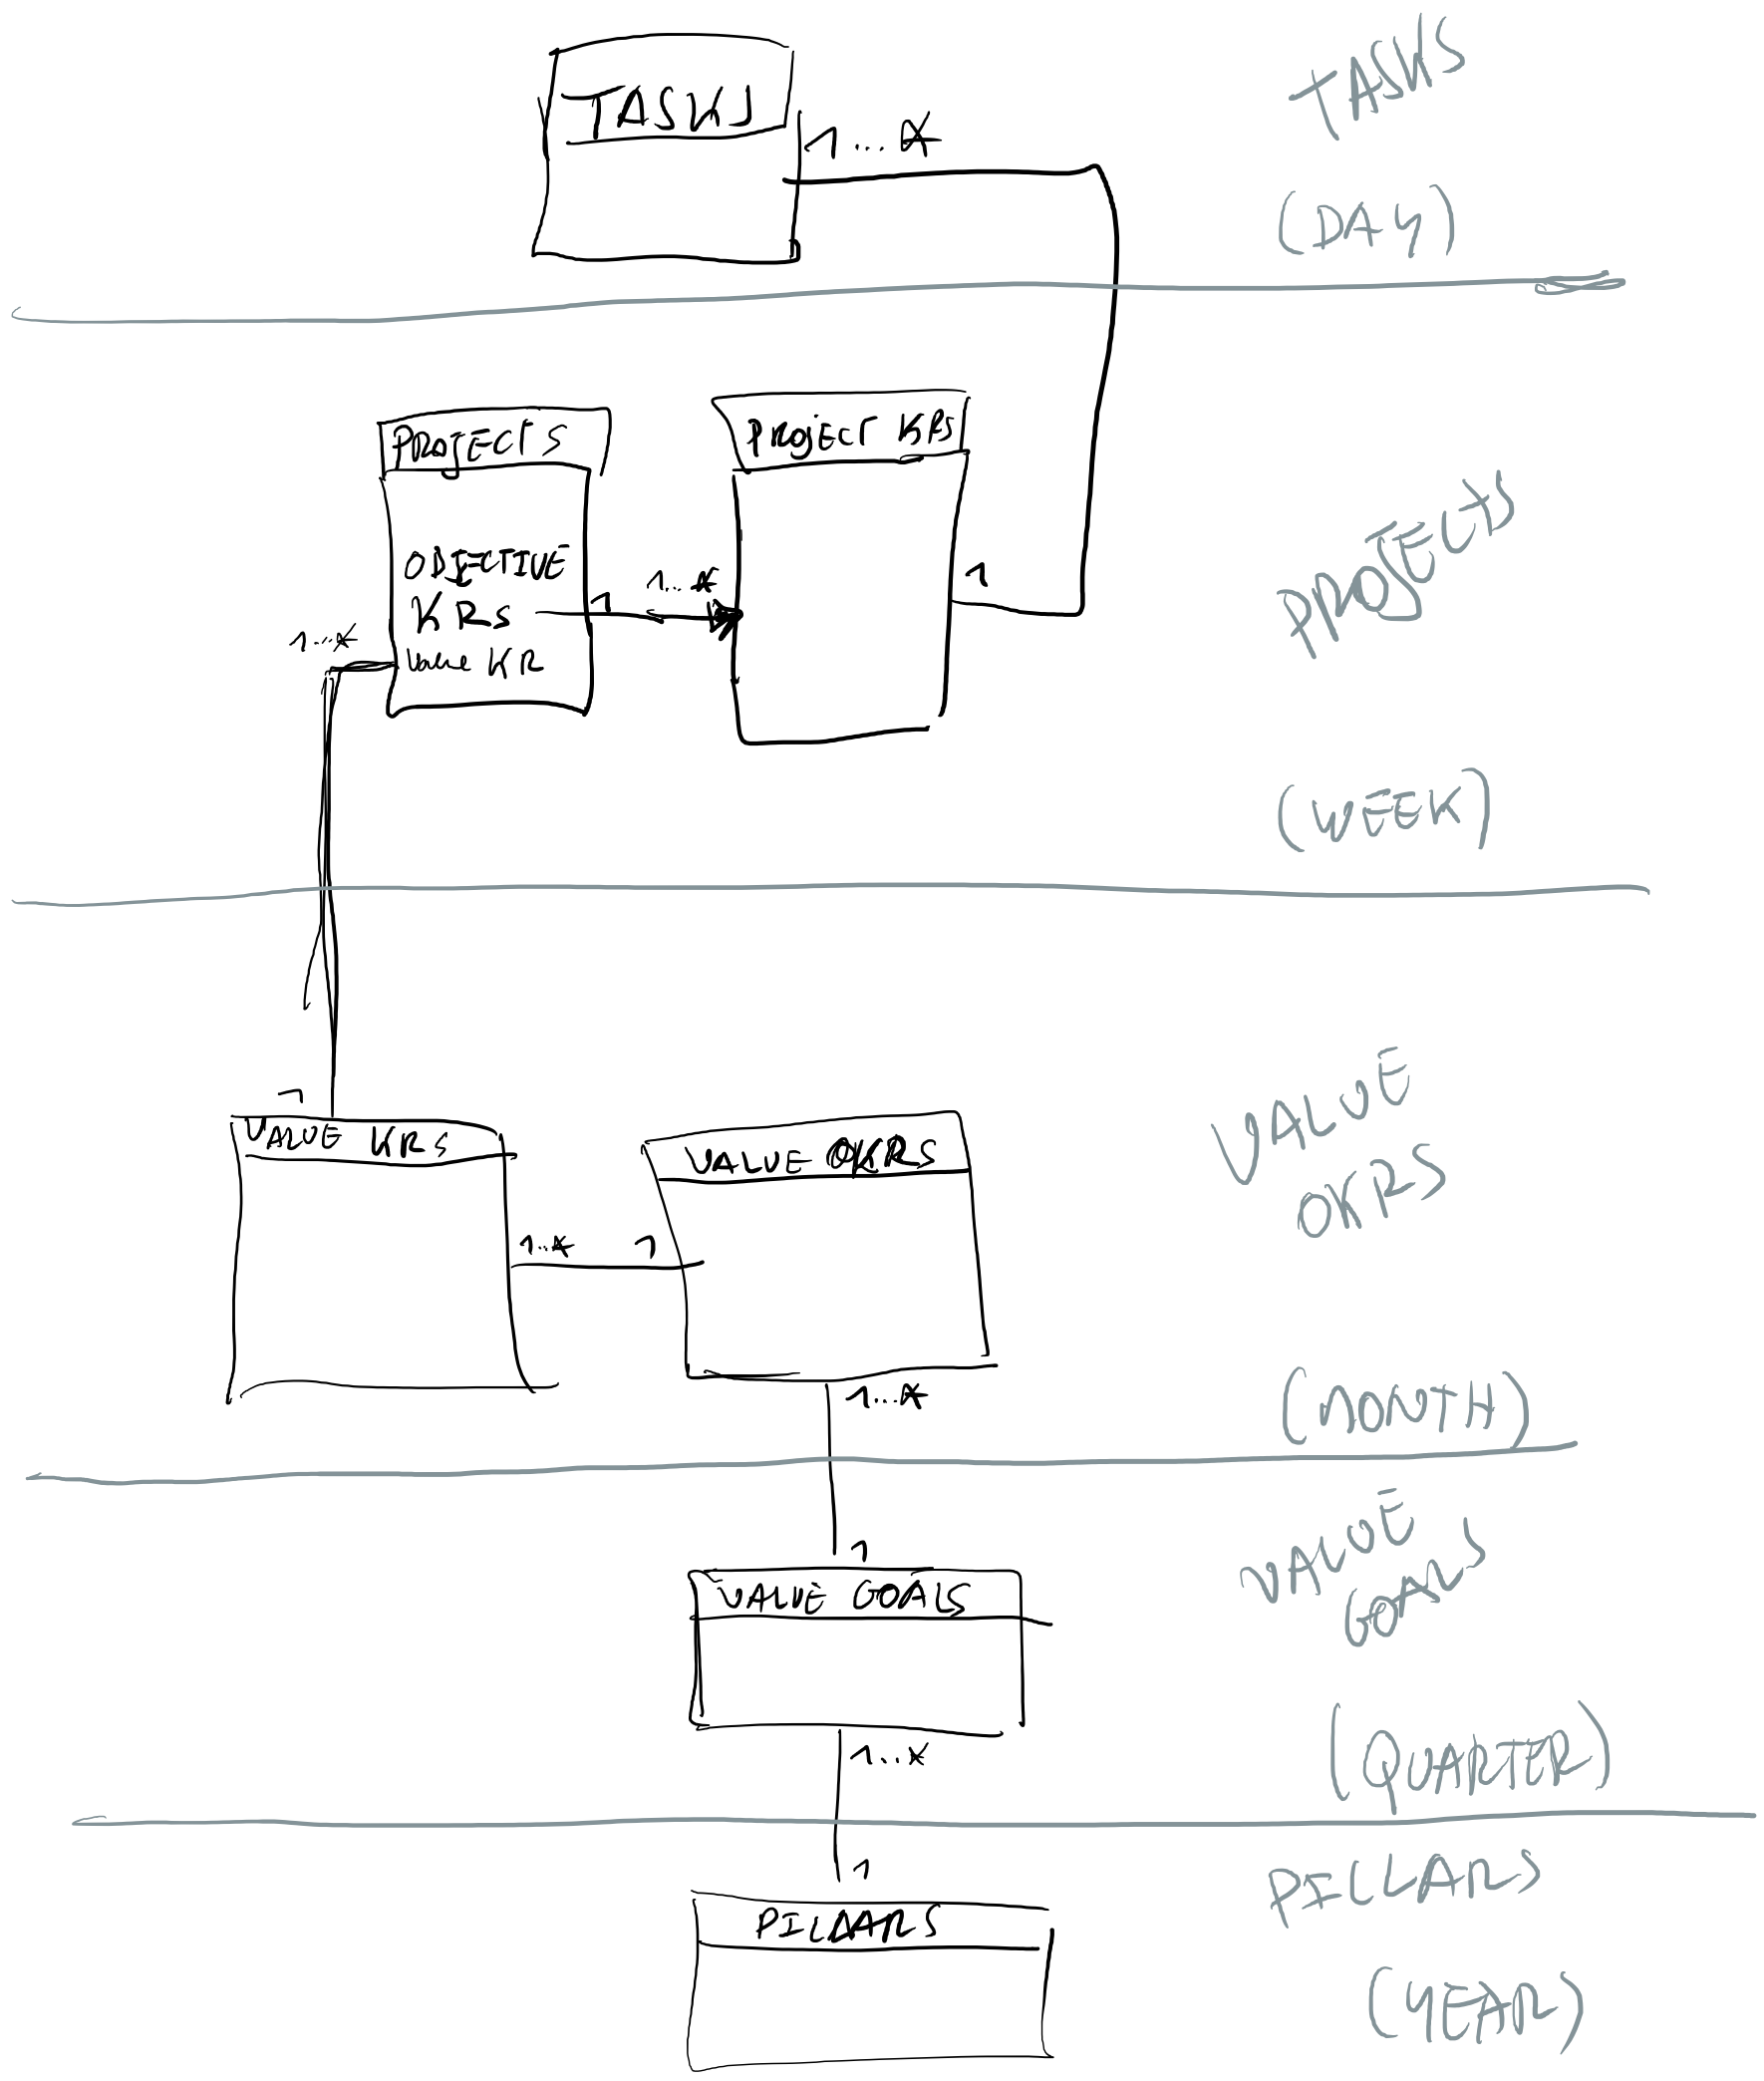 TASKS
1...*
TASKS
(DAY)
PROJECTS
PROJECT KRS
OBJECTIVE
KRS
1
1...*
1
Value KR
1...*
PROJECTS
(WEEK)
1
VALUE KRS
VALUE OKRS
1..*
1
VALUE
OKRS
1...*
(MONTH)
1
VALUE GOALS
VALUE
GOALS
1...*
(QUARTER)
1
PILLARS
PILLARS
(YEAR)